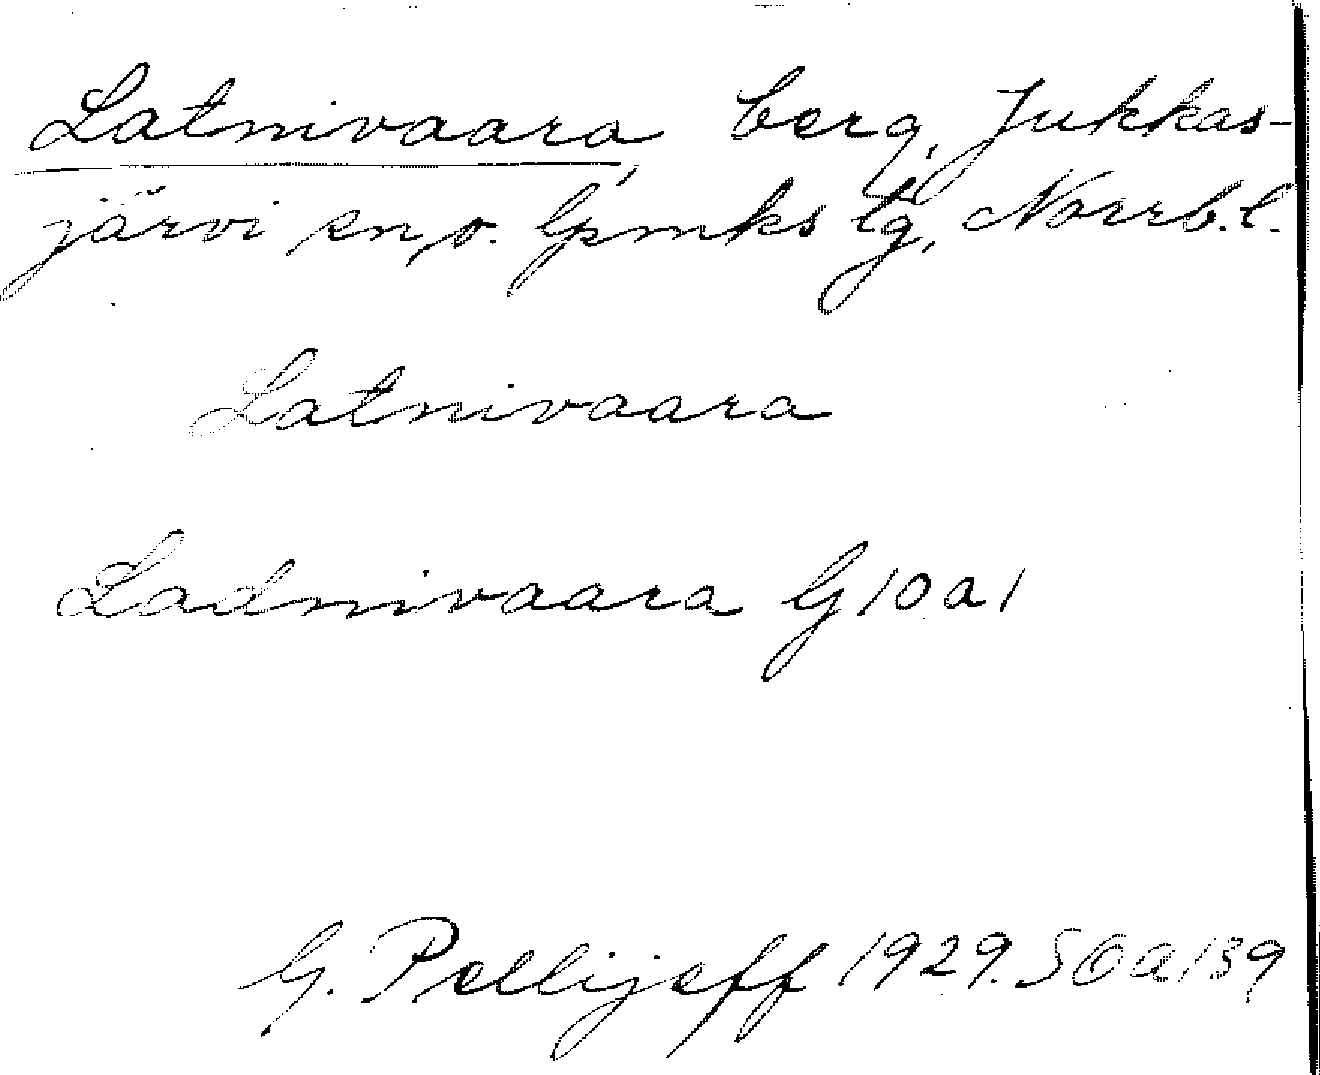 Latnivaara, berg, Jukkas-
järvi sn, o. lpmks tg, Norrb. l.
Latnivaara
Ladnivaara G 10 a 1
G. Pellijeff 1929. SOA 139